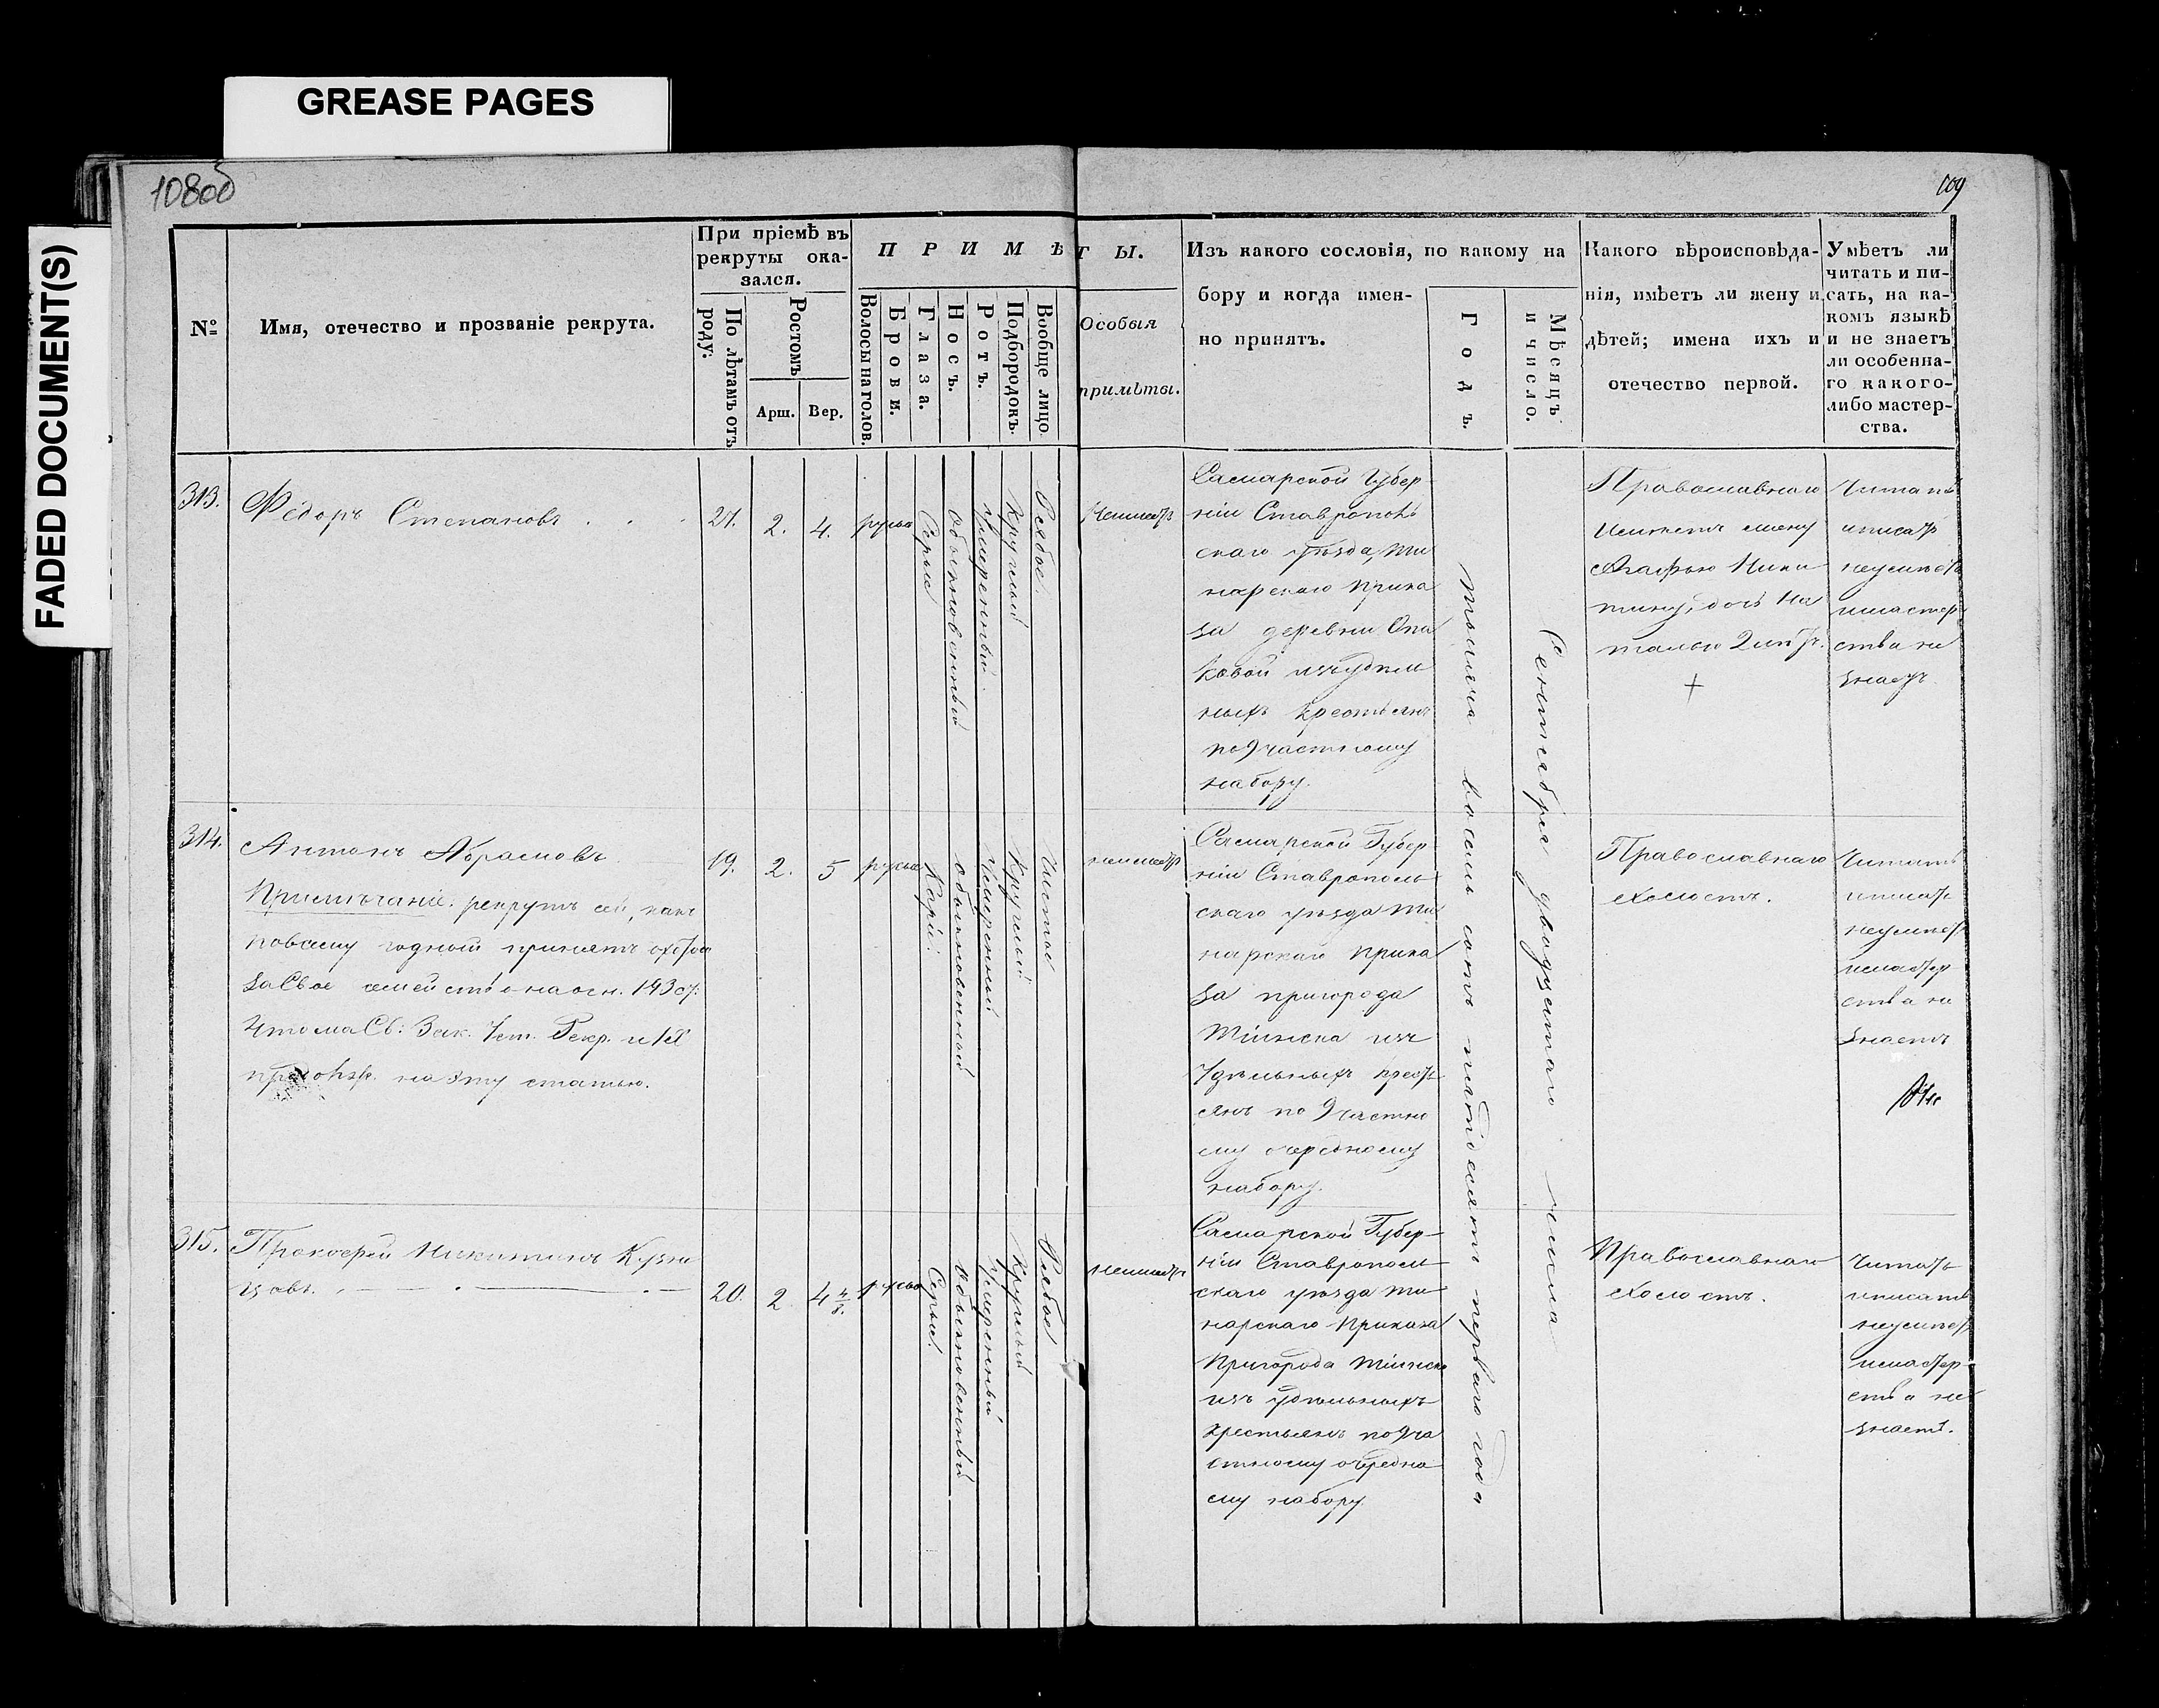 GREASE PAGES
FADED DOCUMENT(S)
108об
109
№
Имя, отечество и прозваніе рекрута.
При пріемѣ въ
рекруты ока-
зался.
По лѣтамъ отъ
роду:
Ростомъ
Арш.
Вер.
ПРИМѢТЫ.
Волосы на голов.
Брови.
Глаза.
Носъ.
Ротъ.
Подбородокъ.
Вообще лицо.
Особыя
примѣты.
Изъ какого сословія, по какому на
бору и когда имен-
но принятъ.
Годъ.
Мѣсяцъ
и число.
Какого вѣроисповѣда-
нія, имѣетъ ли жену и
дѣтей; имена ихъ и
отечество первой.
Умѣетъ ли
читать и пи-
сать, на ка-
комъ языкѣ
и не знаетъ
ли особенна-
го какого-
либо мастер-
ства.
313.
Федоръ Степановъ . . .
21.
2.
4.
русые
Серые
Обыкновенный
Умеренный.
Круглый
Рябое.
Неимѣетъ
Самарской Губер
ніи Ставрополь
скаго уѣзда, Ти
нарскаго Прика
за деревни
изъ удѣль
ныхъ крестьянъ
по 9 частному
набору.
тысяча восемь сотъ пятьдесятъ перваго года
Сентября двадцатаго числа
Православнаго
имѣетъ жену
Агафью Ники
тину, дочь На
талью 2 лѣтъ.
+
Читать
иписать
неумѣетъ
имастер
ства не
знаетъ
314.
Антонъ Абрамовъ
Примѣчаніе: рекрутъ сей, какъ
повсему годный принятъ охотою
за Свое семейство наосн. 193 ст.
4 тома Св: Зак. Уст. Рекр. и IX
прод. на эту статью.
19.
2.
5
русые
Каріе.
Обыкновенный
Умеренный
Круглый
Чистое
неимѣетъ
Самарской Губер
ніи Ставрополь
скаго уѣзда Ти
нарскаго Прика
за пригорода
Тіинска изъ
Удѣльныхъ крест
янъ по 9 частно
му очередному
набору.
Православнаго
холостъ.
Читать
иписать
неумѣетъ
имастер
ства не
знаетъ
315.
Прокофей Никитинъ Кузне
цовъ.
20.
2
4 4/8.
русые
Серые.
Обыкновенный
Умеренный
Круглый
Рябое
неимѣетъ
Самарской Губер-
ніи Ставрополь
скаго уѣзда Ти
нарскаго Приказа
Пригорода Тіинска
изъ удѣльныхъ
крестьянъ по 9 ча
стному очередно
му набору
Православнаго
холостъ.
Читать
иписать
неумѣетъ
имастер-
ства не
знаетъ.